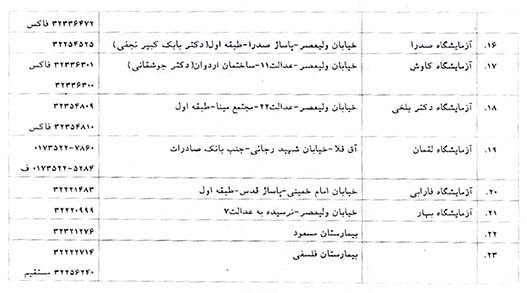 ۳۲۳۳۶۴۷۲ فاکس
۱۶. آزمایشگاه صدرا خیابان ولیعصر-پاساژ صدرا-طبقه اول(دکتر بابک کبیر نجفی) ۳۲۲۵۴۵۲۵
۱۷. آزمایشگاه کاوش خیابان ولیعصر-عدالت۱۱-ساختمان اردوان(دکتر جوشقانی) ۳۲۳۳۶۳۰۱ فاکس
۳۲۳۳۶۳۰۰
۱۸. آزمایشگاه دکتر بلخی خیابان ولیعصر-عدالت۲۲-مجتمع مینا-طبقه اول ۳۲۳۵۴۸۰۹
۳۲۳۵۴۸۱۰ فاکس
۱۹. آزمایشگاه لقمان آق قلا-خیابان شهید رجائی-جنب بانک صادرات ۰۱۷۳۵۲۲-۷۸۶۰
۰۱۷۳۵۲۲-۵۲۸۴ ف
۲۰. آزمایشگاه فارابی خیابان امام خمینی-پاساژ قدس-طبقه اول ۳۲۲۲۱۴۸۳
۲۱. آزمایشگاه بهار خیابان ولیعصر-نرسیده به عدالت۷ ۳۲۲۲۰۹۹۹
۲۲. بیمارستان مسعود ۳۲۳۲۱۲۷۶
۲۳. بیمارستان فلسفی ۳۲۲۲۲۷۱۴
۳۲۲۵۶۲۴۰ مستقیم